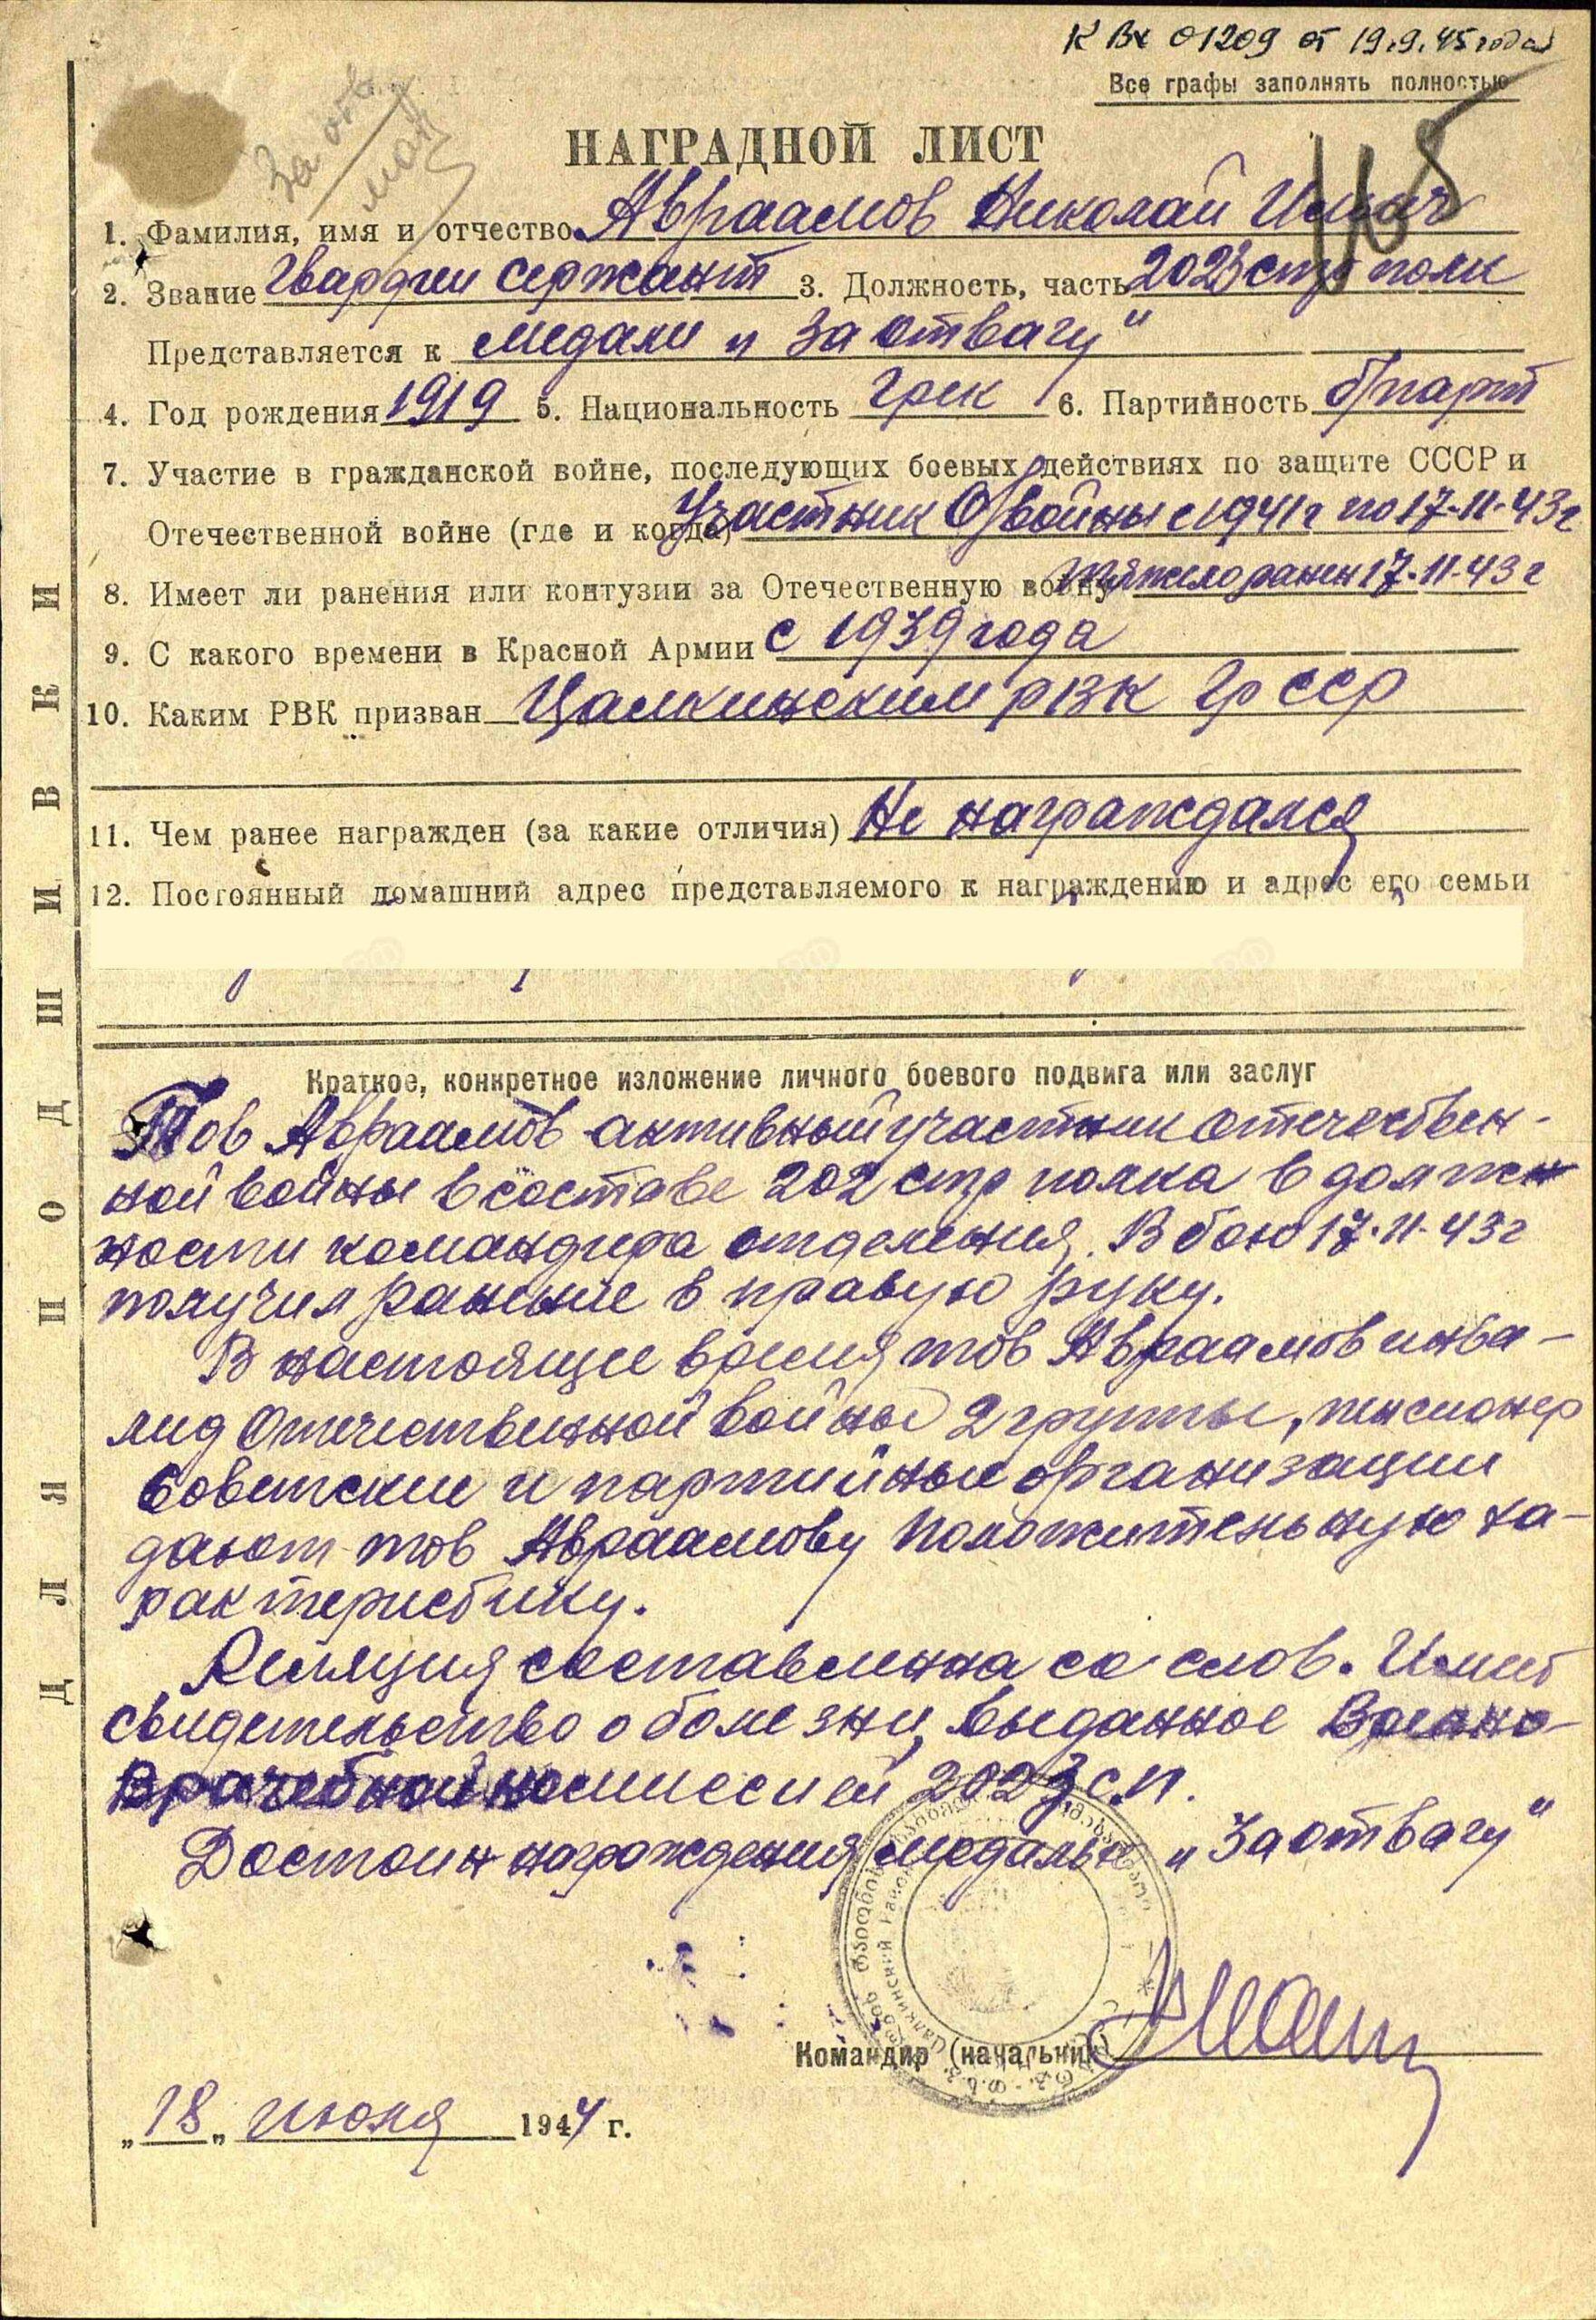 К Вх 01209 от 19.9.45 года
Все графы заполнять полностью
За отв.
НАГРАДНОЙ ЛИСТ
1. Фамилия, имя и отчество Авраамов Николай
2. Звание Гвардии сержант 3. Должность, часть 2023 стр полк
Представляется к медали „За отвагу"
4. Год рождения 1919 5. Национальность Грек 6. Партийность б/парт
7. Участие в гражданской войне, последующих боевых действиях по защите СССР и
Отечественной войне (где и когда) Участник О/войны с 1941г по 17-11-43г
8. Имеет ли ранения или контузии за Отечественную войну тяжело ранен 17-11-43г
9. С какого времени в Красной Армии с 1939 года
10. Каким РВК призван Цалкинским РВК Гр ССР
11. Чем ранее награжден (за какие отличия) Не награждался
12. Постоянный домашний адрес представляемого к награждению и адрес его семьи
Краткое, конкретное изложение личного боевого подвига или заслуг
Тов Авраамов активный участник отечествен-
ной войны в составе 202 стр полка в должн
ности командира отделения. В бою 17-11-43г
получил ранение в правую руку.
В настоящее время тов Авраамов инва-
лид Отечественной войны 2 группы, пенсионер
Советские и партийные организации
дают тов Авраамову положительную ха-
рактеристику.
Реляция составленна со слов. Имеет
свидетельство о болезни, выданное Военно-
Врачебной комиссией 2023 с.п.
Достоин награждения медалью „За отвагу"
Командир (начальник)
„18„ июня 1944 г.
ДЛЯ ПОДШИВКИ